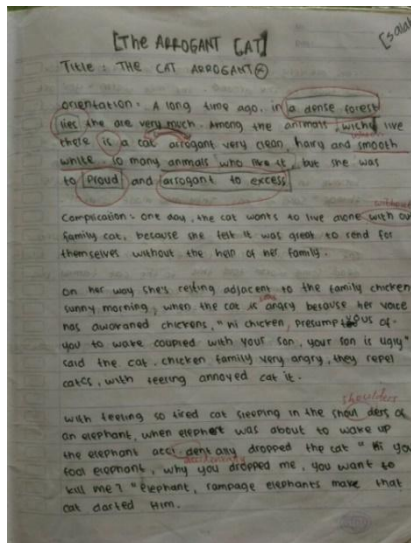 [The ARROGANT CAT]
[salah
Title : THE CAT ARROGANT
orientation. A long time ago. in a dense forest
lies the are very much. Among the animals wichy live
there is a cat arrogant very clean, hairy and smooth
white. So many animals who it, but she was
to Proud and arrogant to excess
without
Complication : one day, the cat wants to live alone with ou
family cat, because she felt it was great to rend for
themselves without the help of her family.
On her way she's resting adjacent to the family chicken
sunny morning, when the cat is angry because her voice
has awakaned chickens, "hi chicken, presumptuous of
you to wake coupled with your son, your son is ugly"
said the cat. chicken family very angry, they repel
cates, with feeling annoyed cat it.
shoulders
with feeling so tired cat sleeping in the shoul ders of
an elephant, when elephent was about to wake up
the elephant acci dent any dropped the cat " Hi you
accidentally
fool elephant, why you dropped me, you want to
kill me ? " elephant, rampage elephants make that
cat darted Him.